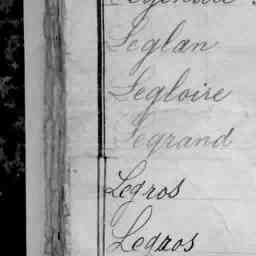 Leglan
Legloire
Legrand
Legros
Legros